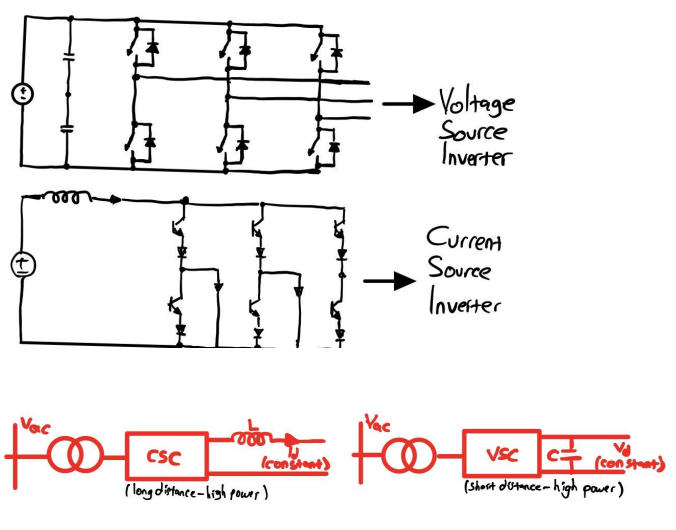 Voltage
Source
Inverter
Current
Source
Inverter
Vac
CSC
L
Id
(constant)
(long distance-high power)
Vac
VSC
C
Vd
(constant)
(short distance-high power)